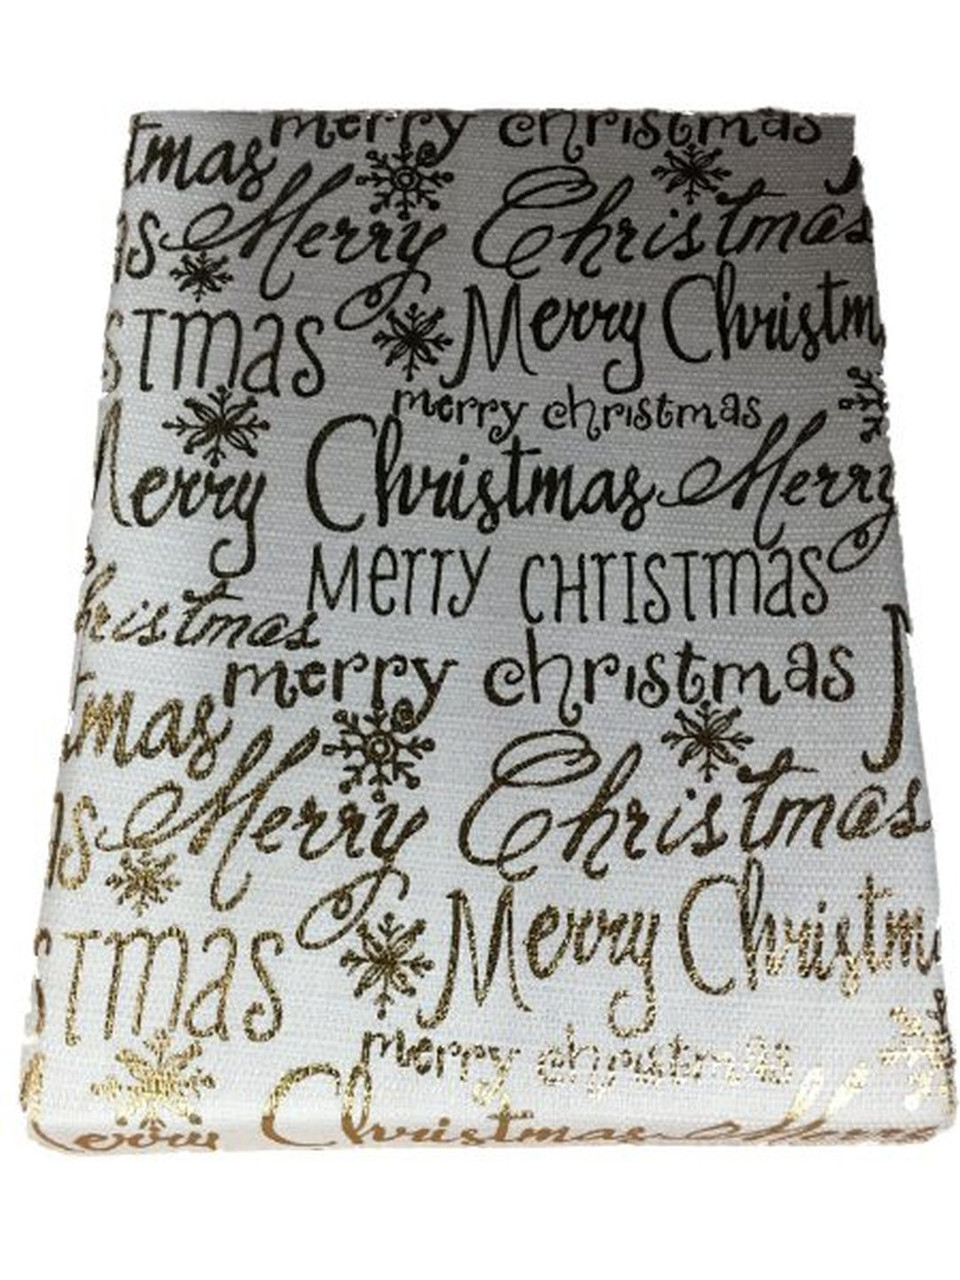 tmas merry christmas
as Merry Christmas
sTmas Merry Christm
merry christmas
Merry Christmas Merry
Merry christmas
hristmas
tmas merry christmas
as Merry Christmas
sTmas Merry Christm
merry christmas
Merry Christmas Merry